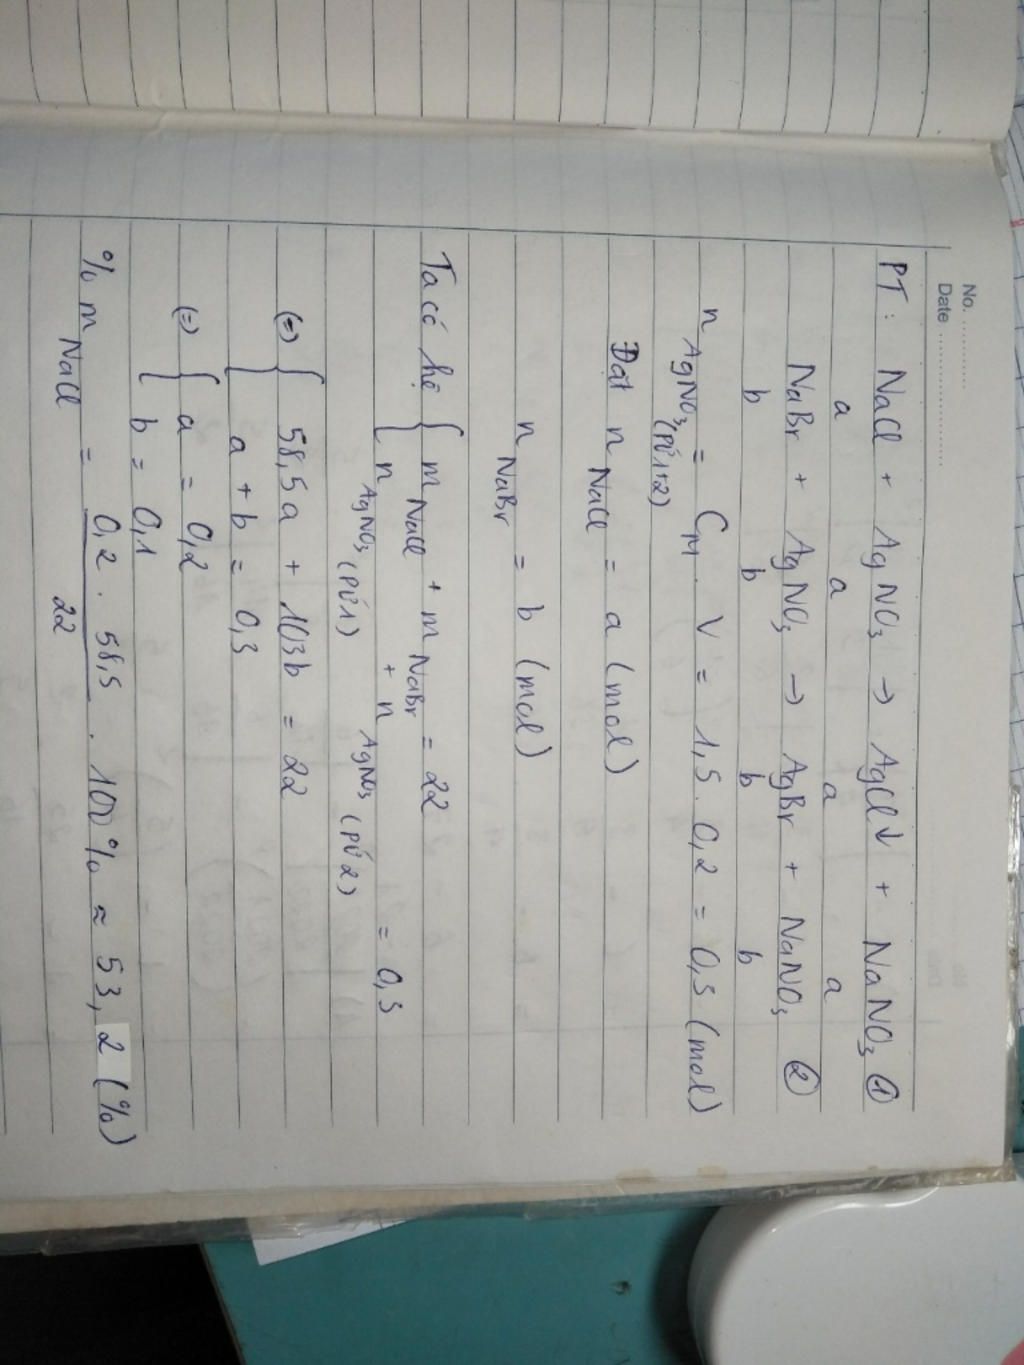 No. ..................
Date ..................
PT: NaCl + AgNO₃ → AgCl↓ + NaNO₃ ①
a a a a
NaBr + AgNO₃ → AgBr + NaNO₃ ②
b b b b
n AgNO₃ (PỨ 1+2) = C_M . V = 1,5 . 0,2 = 0,3 (mol)
Đặt n NaCl = a (mol)
n NaBr = b (mol)
Ta có hệ { m NaCl + m NaBr = 22
n AgNO₃ (PỨ 1) + n AgNO₃ (PỨ 2) = 0,3
(=) { 58,5a + 103b = 22
a + b = 0,3
(=) { a = 0,2
b = 0,1
% m NaCl = 0,2 . 58,5 / 22 . 100% ≈ 53,2 (%)